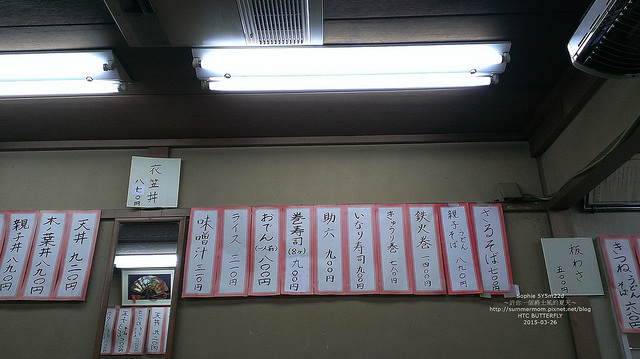 衣笠丼
八七〇円
親子丼 八九〇円
木ノ葉丼 八九〇円
天丼 九二〇円
味噌汁 二一〇円
ライス 二一〇円
おでん(一人前) 八〇〇円
巻寿司(8ヶ) 九〇〇円
助六 九〇〇円
いなり寿司 九〇〇円
きゅうり巻 七八〇円
鉄火巻 一四〇〇円
親子 うどん そば 八九〇円
ざるそば 七〇〇円
板わさ
五〇〇円
きつね
Sophie SYSm22d
~許你一個爵士風的夏天~
http://summermom.pixnet.net/blog
HTC BUTTERFLY
2015-03-26